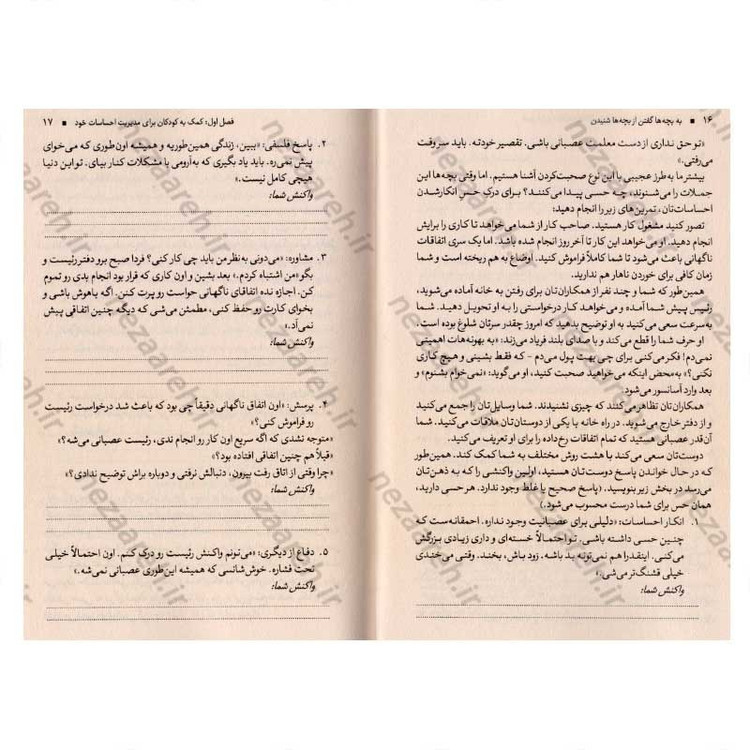 ۱۶ ■ به بچه‌ها گفتن از بچه‌ها شنیدن
«تو حق نداری از دست معلمت عصبانی باشی. تقصیر خودته. باید سر وقت
می‌رفتی.»
بیشتر ما به‌طرز عجیبی با این نوع صحبت‌کردن آشنا هستیم. اما وقتی بچه‌ها این
جملات را می‌شنوند، چه حسی پیدا می‌کنند؟ برای درک حسِ انکارشدن
احساسات‌تان، تمرین‌های زیر را انجام دهید:
تصور کنید مشغول کار هستید. صاحب کار از شما می‌خواهد تا کاری را برایش
انجام دهید. او می‌خواهد این کار تا آخر روز انجام شده باشد. اما یک سری اتفاقات
ناگهانی باعث می‌شود تا شما کاملاً فراموش کنید. اوضاع به هم ریخته است و شما
زمان کافی برای خوردن ناهار هم ندارید.
همین‌طور که شما و چند نفر از همکاران‌تان برای رفتن به خانه آماده می‌شوید،
رئیس پیش شما آمده و می‌خواهد کار درخواستی را به او تحویل دهید. شما
به‌سرعت سعی می‌کنید به او توضیح بدهید که امروز چقدر سرتان شلوغ بوده است.
او حرف شما را قطع می‌کند و با صدای بلند فریاد می‌زند: «به بهونه‌هات اهمیتی
نمی‌دم! فکر می‌کنی برای چی بهت پول می‌دم – که فقط بشینی و هیچ کاری
نکنی؟» به‌محض اینکه می‌خواهید صحبت کنید، او می‌گوید: «نمی‌خوام بشنوم» و
بعد وارد آسانسور می‌شود.
همکاران‌تان تظاهر می‌کنند که چیزی نشنیدند. شما وسایل‌تان را جمع می‌کنید
و از دفتر خارج می‌شوید. در راه خانه با یکی از دوستان‌تان ملاقات می‌کنید. شما
آن‌قدر عصبانی هستید که تمام اتفاقات رخ‌داده را برای او تعریف می‌کنید.
دوست‌تان سعی می‌کند با هشت روش مختلف به شما کمک کند. همین‌طور
که در حال خواندن پاسخ دوست‌تان هستید، اولین واکنشی را که به ذهن‌تان
می‌رسد در بخش زیر بنویسید. (پاسخ صحیح یا غلط وجود ندارد. هر حسی دارید،
همان حس برای شما درست محسوب می‌شود.)
۱. انکار احساسات: «دلیلی برای عصبانیت وجود نداره. احمقانه‌ست که
چنین حسی داشته باشی. تو احتمالاً خسته‌ای و داری زیادی بزرگش
می‌کنی. اینقدرا هم نمی‌تونه بد باشه. زود باش، بخند. وقتی می‌خندی
خیلی قشنگ‌تر می‌شی.»
واکنش شما:
فصل اول: کمک به کودکان برای مدیریت احساسات خود ■ ۱۷
۲. پاسخ فلسفی: «ببین، زندگی همین‌طوریه و همیشه اون طوری که می‌خوای
پیش نمی‌ره. باید یاد بگیری که به‌آرومی با مشکلات کنار بیای. تو این دنیا
هیچی کامل نیست.»
واکنش شما:
۳. مشاوره: «می‌دونی به‌نظر من باید چی کار کنی؟ فردا صبح برو دفتر رئیست و
بگو «من اشتباه کردم.» بعد بشین و اون کاری که قرار بود انجام بدی رو تموم
کن. اجازه نده اتفاقای ناگهانی حواست رو پرت کنن. اگه باهوش باشی و
بخوای کارت رو حفظ کنی، مطمئن می‌شی که دیگه چنین اتفاقی پیش
نمی‌آد.»
واکنش شما:
۴. پرسش: «اون اتفاق ناگهانی دقیقاً چی بود که باعث شد درخواست رئیست
رو فراموش کنی؟»
«متوجه نشدی که اگه سریع اون کار رو انجام ندی، رئیست عصبانی می‌شه؟»
«قبلاً هم چنین اتفاقی افتاده بود؟»
«چرا وقتی از اتاق رفت بیرون، دنبالش نرفتی و دوباره براش توضیح ندادی؟»
واکنش شما:
۵. دفاع از دیگری: «می‌تونم واکنش رئیست رو درک کنم. اون احتمالاً خیلی
تحت فشاره. خوش‌شانسی که همیشه این‌طوری عصبانی نمی‌شه.»
واکنش شما:
nezaareh.ir